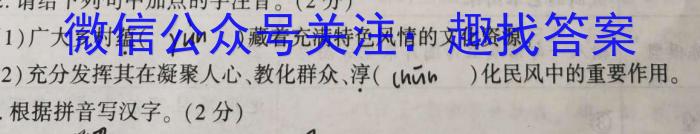 给下列句中加点的字注音。(2分)
微信公众号关注：趣找答案
1)广大 村蕴( yùn )藏着充满特色风情的文化资源
2)充分发挥其在凝聚人心、教化群众、淳( chún )化民风中的重要作用。
.根据拼音写汉字。(2分)